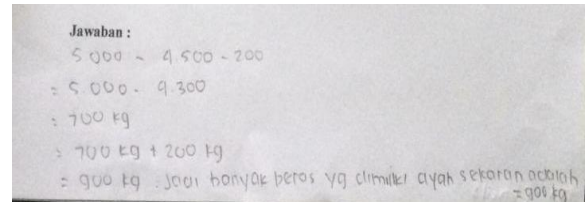 Jawaban :
5000 - 4.500 - 200
= 5.000 - 4.300
= 700 kg
= 700 kg + 200 kg
= 900 kg. Jadi banyak beras yg dimiliki ayah sekaran adalah
= 900 kg